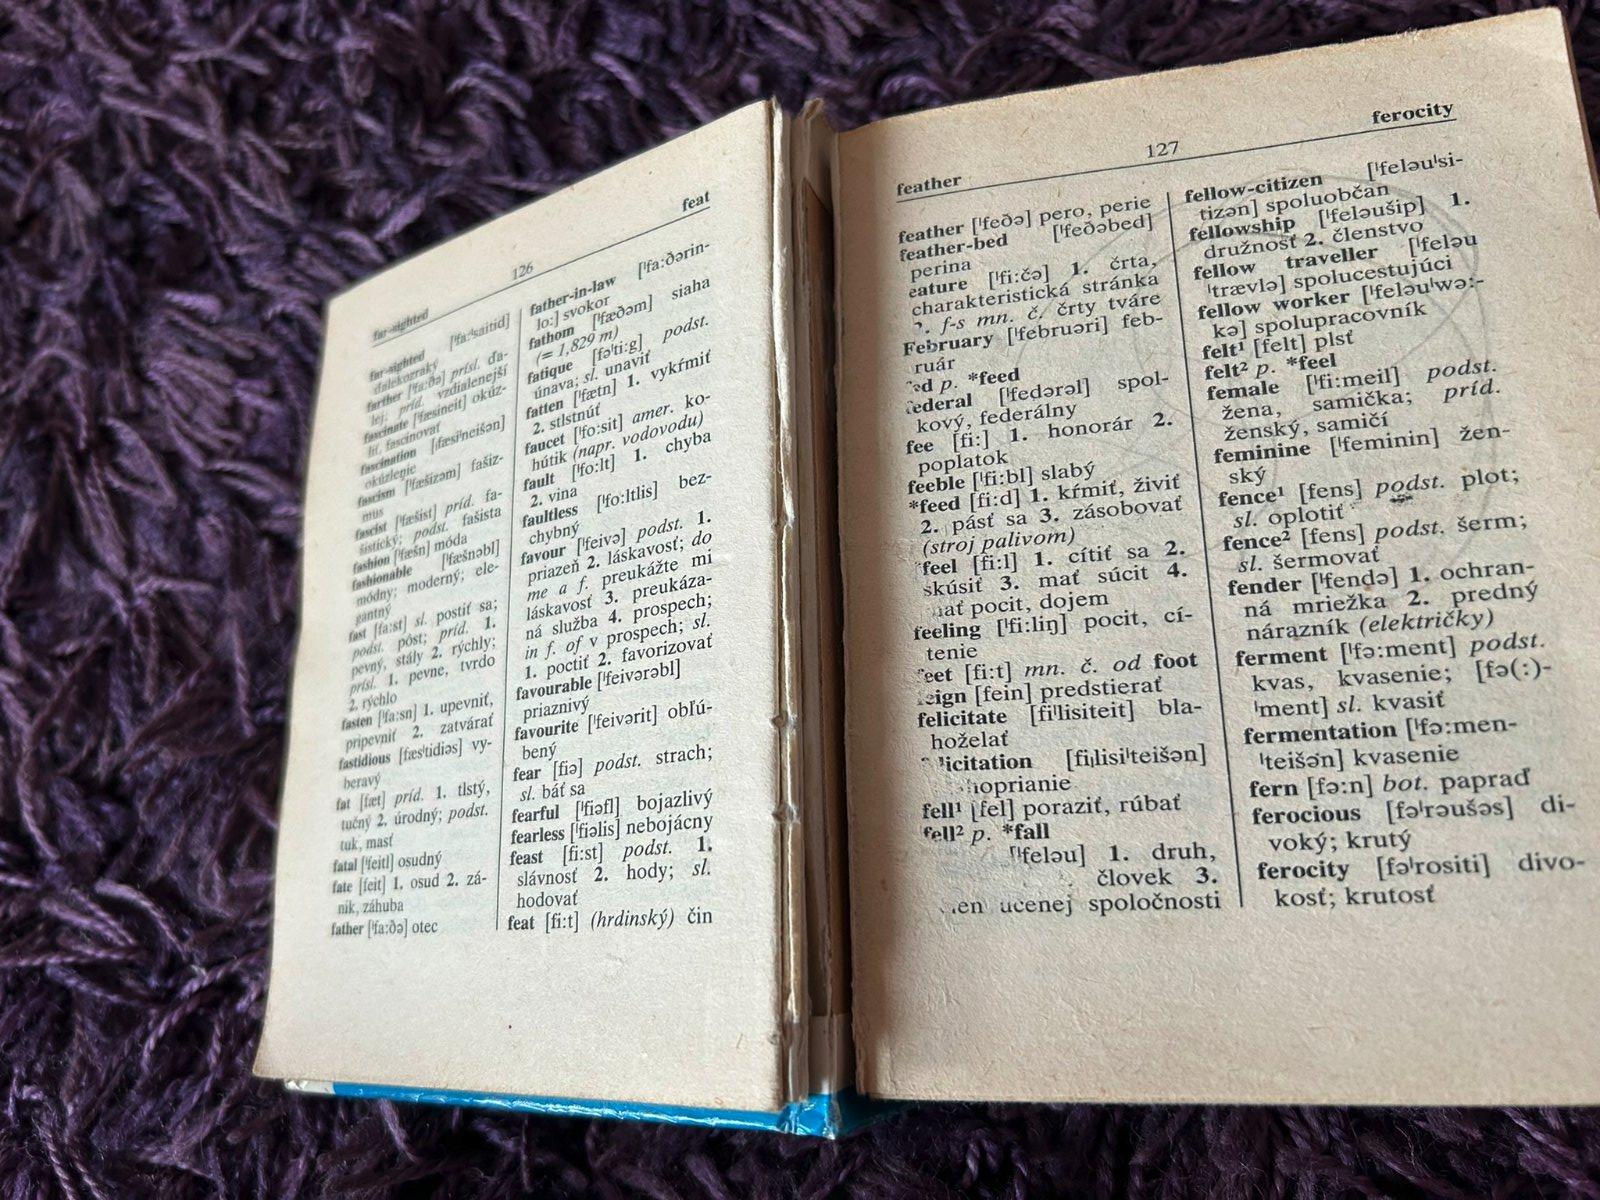 far-sighted
126
feat
far-sighted [ˈfa:ˈsaitid]
ďalekozraký
farther [ˈfa:ðə] prísl. ďa-
lej; príd. vzdialenejší
fascinate [ˈfæsineit] okúz-
liť, fascinovať
fascination [ˌfæsiˈneišən]
okúzlenie
fascism [ˈfæšizəm] fašiz-
mus
fascist [ˈfæšist] príd. fa-
šistický; podst. fašista
fashion [ˈfæšn] móda
fashionable [ˈfæšnəbl]
módny; moderný; ele-
gantný
fast [fa:st] sl. postiť sa;
podst. pôst; príd. 1.
pevný, stály 2. rýchly;
prísl. 1. pevne, tvrdo
2. rýchlo
fasten [ˈfa:sn] 1. upevniť,
pripevniť 2. zatvárať
fastidious [fæsˈtidiəs] vy-
beravý
fat [fæt] príd. 1. tlstý,
tučný 2. úrodný; podst.
tuk, masť
fatal [ˈfeitl] osudný
fate [feit] 1. osud 2. zá-
nik, záhuba
father [ˈfa:ðə] otec
father-in-law [ˈfa:ðərin-
lo:] svokor
fathom [ˈfæðəm] siaha
(= 1,829 m)
fatique [fəˈti:g] podst.
únava; sl. unaviť
fatten [ˈfætn] 1. vykŕmiť
2. stlstnúť
faucet [ˈfo:sit] amer. ko-
hútik (napr. vodovodu)
fault [ˈfo:lt] 1. chyba
2. vina
faultless [ˈfo:ltlis] bez-
chybný
favour [ˈfeivə] podst. 1.
priazeň 2. láskavosť; do
me a f. preukážte mi
láskavosť 3. preukáza-
ná služba 4. prospech;
in f. of v prospech; sl.
1. poctiť 2. favorizovať
favourable [ˈfeivərəbl]
priaznivý
favourite [ˈfeivərit] obľú-
bený
fear [fiə] podst. strach;
sl. báť sa
fearful [ˈfiəfl] bojazlivý
fearless [ˈfiəlis] nebojácny
feast [fi:st] podst. 1.
slávnosť 2. hody; sl.
hodovať
feat [fi:t] (hrdinský) čin
feather
127
ferocity
feather [ˈfeðə] pero, perie
feather-bed [ˈfeðəbed]
perina
eature [ˈfi:čə] 1. črta,
charakteristická stránka
2. f-s mn. č. črty tváre
February [ˈfebruəri] feb-
ruár
ed p. *feed
federal [ˈfedərəl] spol-
kový, federálny
fee [fi:] 1. honorár 2.
poplatok
feeble [ˈfi:bl] slabý
*feed [fi:d] 1. kŕmiť, živiť
2. pásť sa 3. zásobovať
(stroj palivom)
*feel [fi:l] 1. cítiť sa 2.
skúsiť 3. mať súcit 4.
mať pocit, dojem
feeling [ˈfi:liŋ] pocit, cí-
tenie
eet [fi:t] mn. č. od foot
eign [fein] predstierať
felicitate [fiˈlisiteit] bla-
hoželať
licitation [fiˌlisiˈteišən]
hoprianie
fell¹ [fel] poraziť, rúbať
fell² p. *fall
[ˈfeləu] 1. druh,
človek 3.
len učenej spoločnosti
fellow-citizen [ˈfeləuˈsi-
tizən] spoluobčan
fellowship [ˈfeləušip] 1.
družnosť 2. členstvo
fellow traveller [ˈfeləu
ˈtrævlə] spolucestujúci
fellow worker [ˈfeləuˈwə:-
kə] spolupracovník
felt¹ [felt] plsť
felt² p. *feel
female [ˈfi:meil] podst.
žena, samička; príd.
ženský, samičí
feminine [ˈfeminin] žen-
ský
fence¹ [fens] podst. plot;
sl. oplotiť
fence² [fens] podst. šerm;
sl. šermovať
fender [ˈfendə] 1. ochran-
ná mriežka 2. predný
nárazník (električky)
ferment [ˈfə:ment] podst.
kvas, kvasenie; [fə(:)-
ˈment] sl. kvasiť
fermentation [ˈfə:men-
ˈteišən] kvasenie
fern [fə:n] bot. papraď
ferocious [fəˈrəušəs] di-
voký; krutý
ferocity [fəˈrositi] divo-
kosť; krutosť